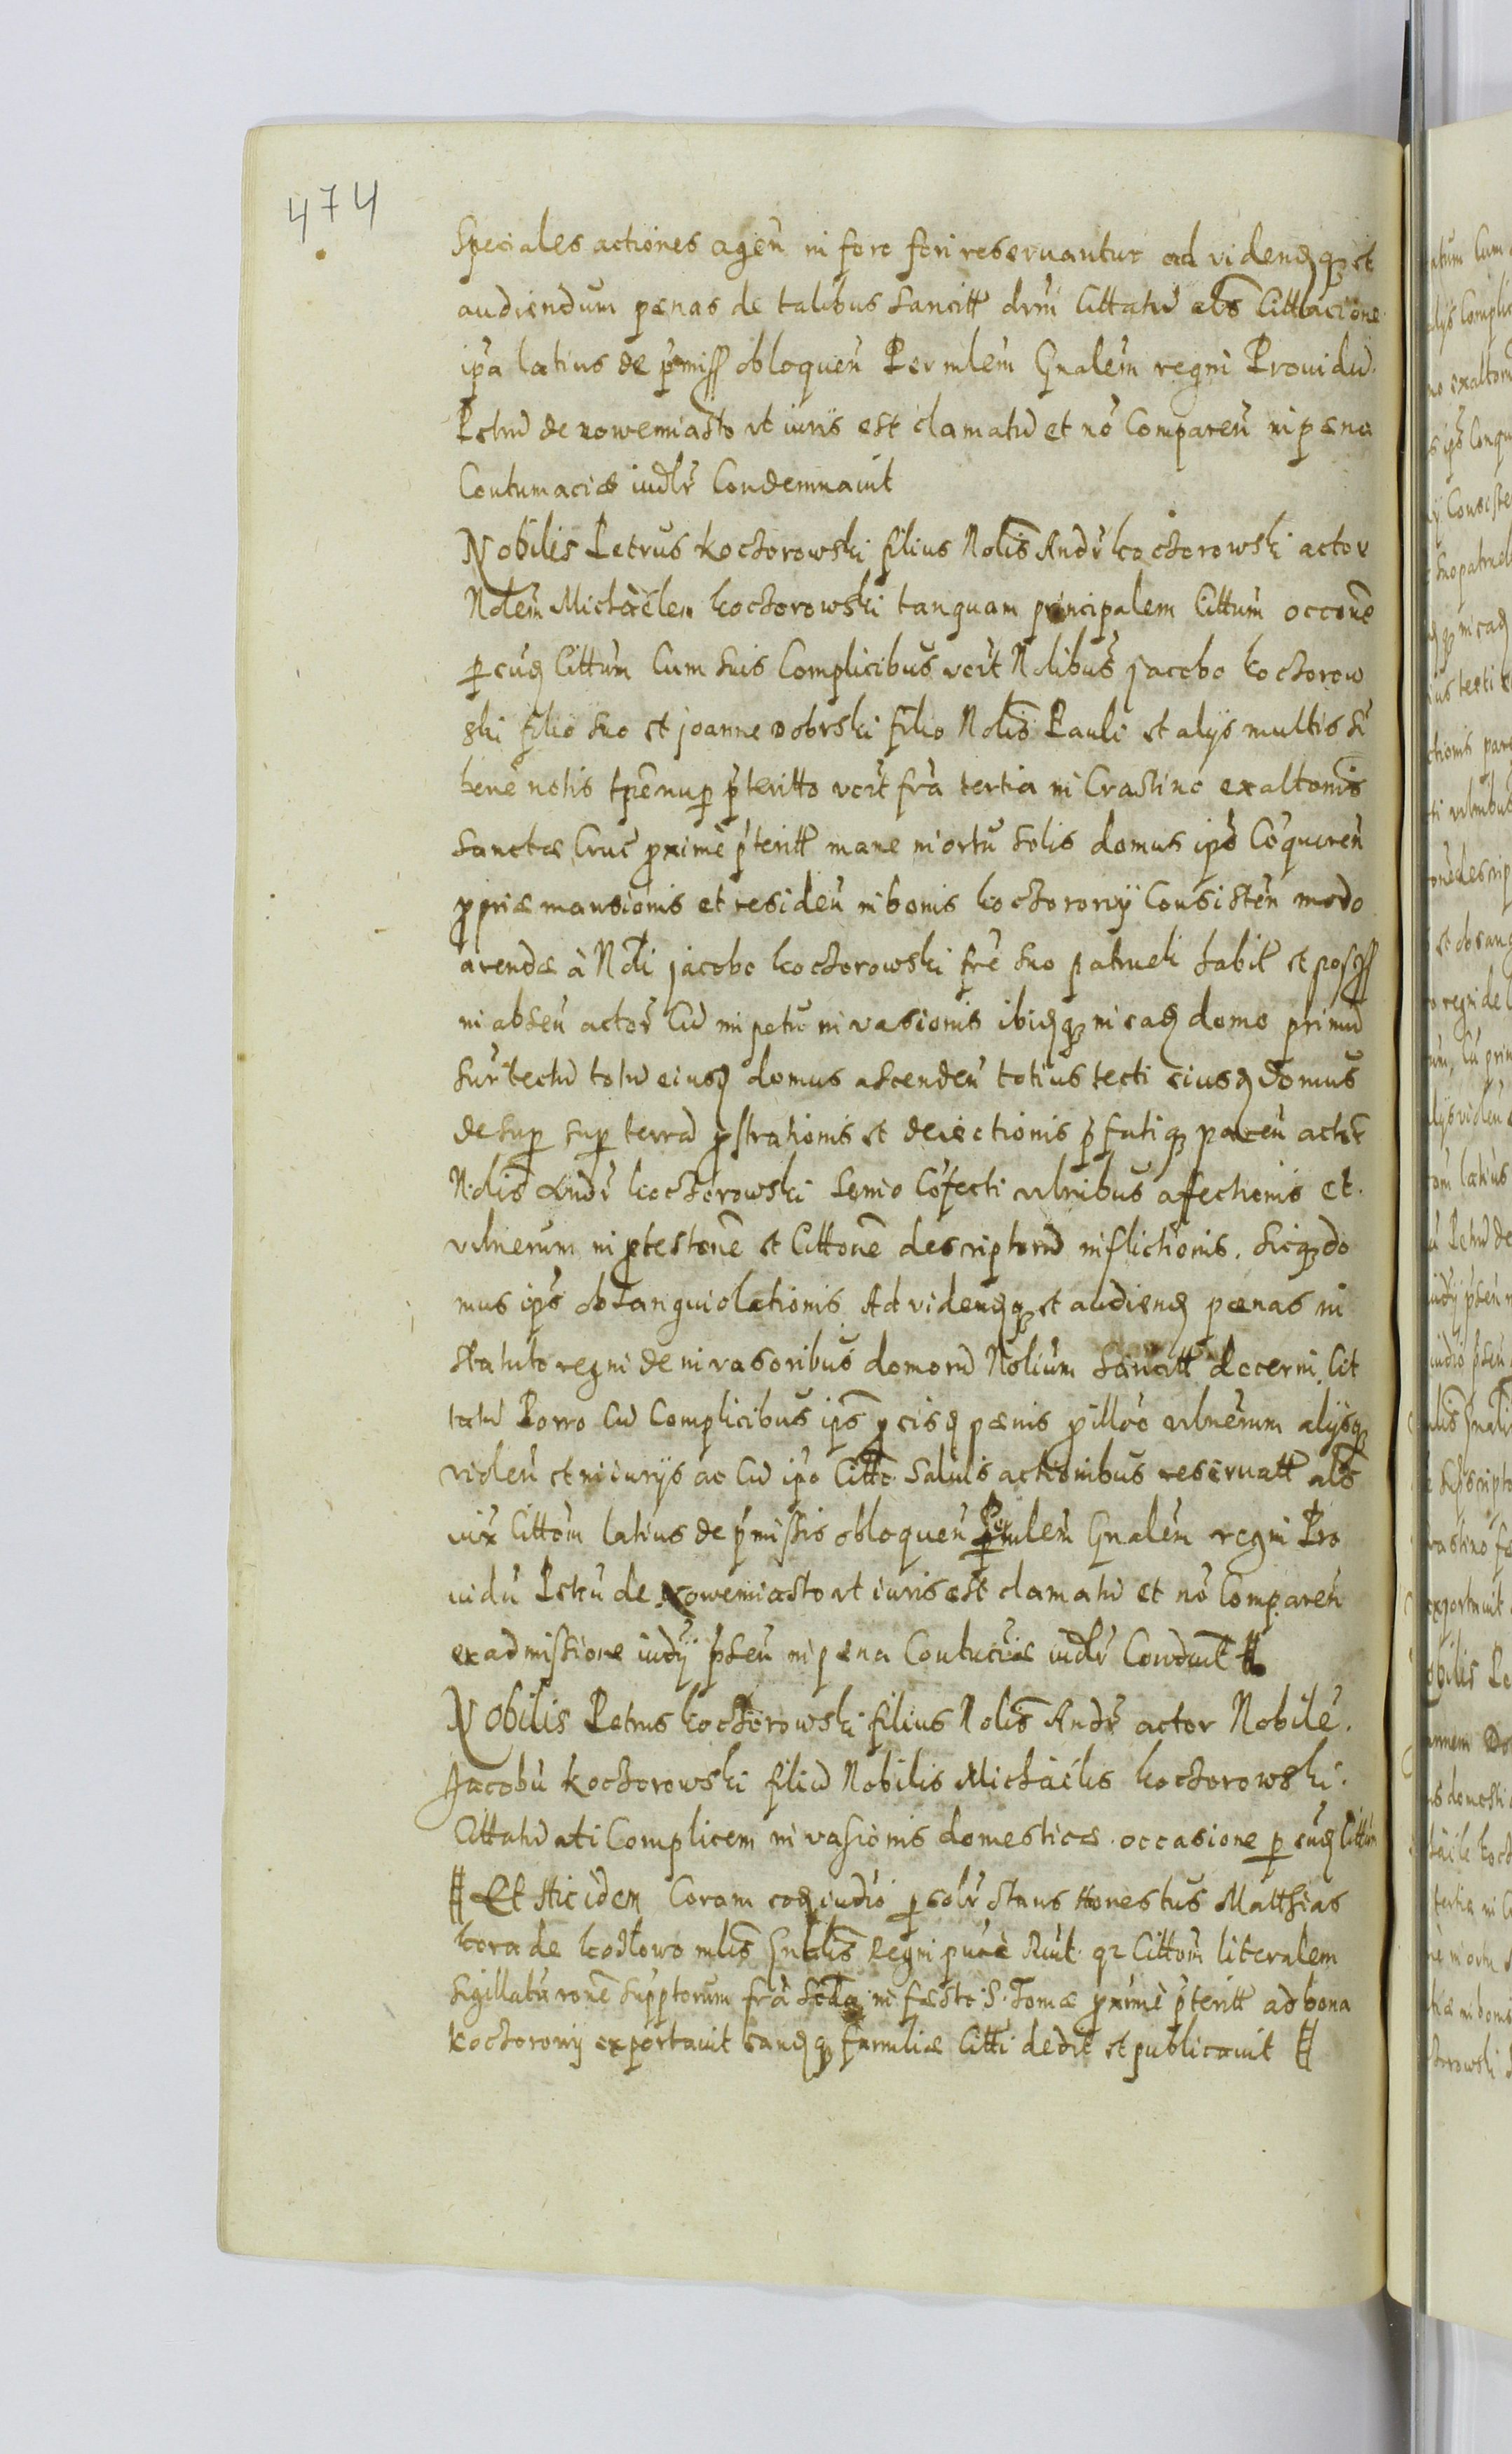 474
Speciales actiones ageñ in foro fori reservantur ad videnđq et
audiendum pænas de talibus sancitt drm̃ Cittatũ als̃ Cittacione
ipa latius de p̃miss obloqueñ Per mlem̃ Gnalem̃ regni Providũ
Petrũ de nowemiasto ut iuris est clamatũ et nõ Compareñ in pæna
Contumaciæ iudlr̃ Condemnavit
Nobilis Petrus Koctorowski filius Nolis̃ Andr̃ koctorowski actor
Nolem̃ Michaelem koctorowski tanquam principalem Cittum̃ occone
p eũđ Cittum̃ Cum suis Complicibus vcit̃ Nolibus̃ jacobo koctorow
ski filio suo et joanne dobrski filio Nolis̃ Pauli et alys multis s̃
bene notis tpẽ nup p̃teritto vcit̃ fr̃a tertia in Crastino exaltonis̃
Sanctæ Cruc̃ proxime p̃teritt mane in ortu solis domus ips̃ Coqueren̄
propriæ mansionis et resideñ in bonis koctorowy Consisteñ modo
arendæ à Noli jacobo koctorowski fr̃e suo patrueli habit et possess
in abseñ actor̃ Cũ impetu invasionis ibiđq in eađ domo primũ
supr̃ tectũ totũ eiusđ domus ascendeñ totius tecti eiusđ domus
desup sup terrã prostrationis et deiectionis p̃fatiq pareñ actor̃
Nolis̃ Andr̃ koctorowski senio Cõfecti vlnribus̃ affectionis et
vulnerum in protestone et Cittone descriptorũ inflictionis. Sicq do
mus ips̃ obsanguiolationis Ad videnđq et audienđ pænas in
statuto regni de invasoribus domorũ Nolium̃ sancitt decerni Cit
tatũ Porro Cũ Complicibus ips̃ p eisđ pænis p illoo vulnerum alysq
violeñ et iniurys ac Cũ ipo Citto. salvis actionibus reservatt als̃
iux Cittom̃ latius de p̃missis obloqueñ Per mlem̃ Gnalem̃ regni Pro
vidũ Petrũ de nowemiasto ut iuris est clamatũ et nõ Compareñ
ex admissione iudÿ p̃señ in pæna Contuciæ iudlr̃ Condũit #
Nobilis Petrus koctorowski filius Nolis̃ Andr̃ actor Nobilẽ
Jacobũ koctorowski filiũ Nobilis Michaelis koctorowski
Cittatũ ati Complicem invasionis domesticæ occasione p eũđ Cittũ
# Et Hic idem Coram eođ iudio psolr̃ stans Honestus Matthias
kora de kozłowo mlis̃ Gnalis̃ Regni purè Rcuit qz Cittom̃ literalem
sigillatã rone supptorum fr̃a scđa in festo S. Tomæ proximè p̃teritt ad bona
koctorowy exportavit eanđq familiæ Citti dedit et publicavit #